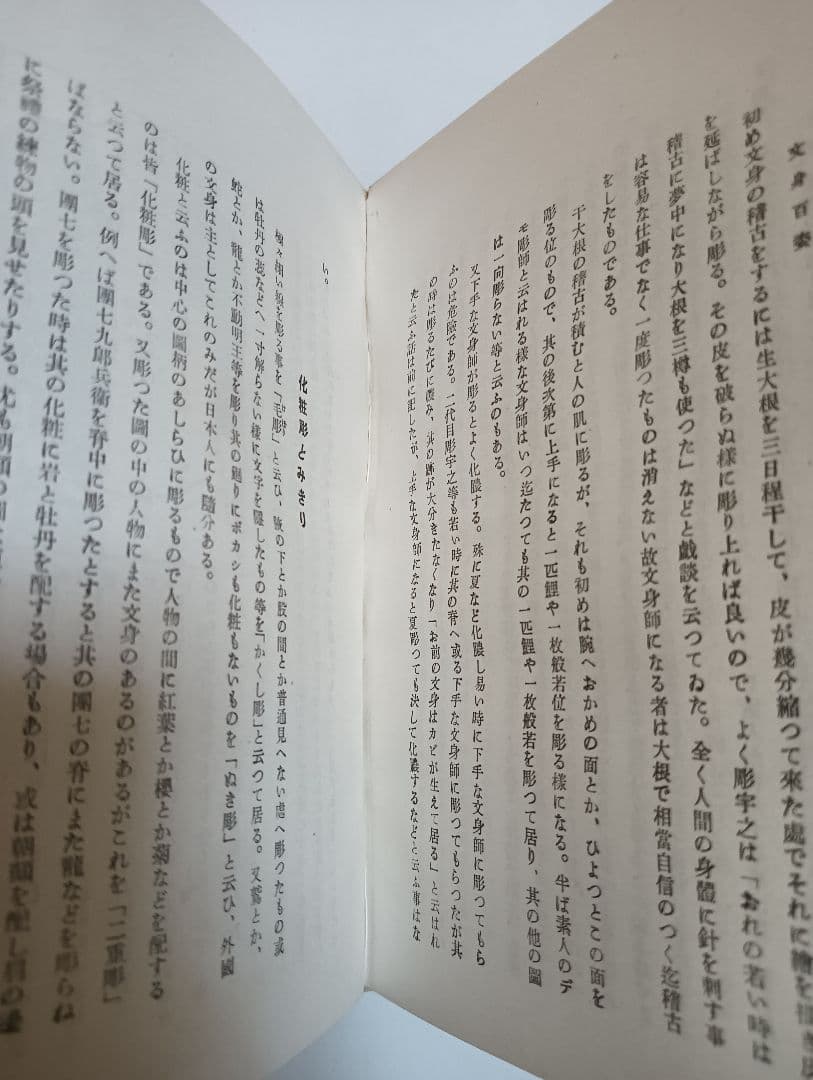 文身百姿
初め文身の稽古をするには生大根を三日程干して、皮が幾分縮つて來た處でそれに繪を描き
を延ばしながら彫る。その皮を破らぬ樣に彫り上れば良いので、よく彫宇之は「おれの若い時は
稽古に夢中になり大根を三樽も使つた」などと戯談を云つてゐた。全く人間の身體に針を刺す事
は容易な仕事でなく一度彫つたものは消えない故文身師になる者は大根で相當自信のつく迄稽古
をしたものである。
干大根の稽古が積むと人の肌に彫るが、それも初めは腕へおかめの面とか、ひよつとこの面を
彫る位のもので、其の後次第に上手になると一匹鯉や一枚般若位を彫る樣になる。半ば素人のデ
モ彫師と云はれる樣な文身師はいつ迄たつても其の一匹鯉や一枚般若を彫つて居り、其の他の圖
は一向彫らない等と云ふのもある。
又下手な文身師が彫るとよく化膿する。殊に夏など化膿し易い時に下手な文身師に彫つてもら
ふのは危險である。二代目彫宇之等も若い時に其の脊へ或る下手な文身師に彫つてもらつたが其
の時は彫るたびに膿み、其の跡が大分きたなくなり「お前の文身はカビが生えて居る」と云はれ
たと云ふ話は前に記したが、上手な文身師になると夏彫つても決して化膿するなどと云ふ事はな
い。
化粧彫とみきり
極々細い線を彫る事を「毛彫」と云ひ、腋の下とか股の間とか普通見へない處へ彫つたもの或
は牡丹の葩などへ一寸解らない樣に文字を隱したもの等を「かくし彫」と云つて居る。又鷲とか、
蛇とか、龍とか不動明王等を彫り其の廻りにボカシも化粧もないものを「ぬき彫」と云ひ、外國
の文身は主としてこれのみだが日本人にも隨分ある。
化粧と云ふのは中心の圖柄のあしらひに彫るもので人物の間に紅葉とか櫻とか菊などを配する
のは皆「化粧彫」である。又彫つた圖の中の人物にまた文身のあるのがあるがこれを「二重彫」
と云つて居る。例へば團七九郎兵衛を脊中に彫つたとすると其の團七の脊にまた龍などを彫らね
ばならない。團七を彫つた時は其の化粧に岩と牡丹を配する場合もあり、或は朝顏を配し肩の邊
に祭禮の練物の頭を見せたりする。尤も朝顏の